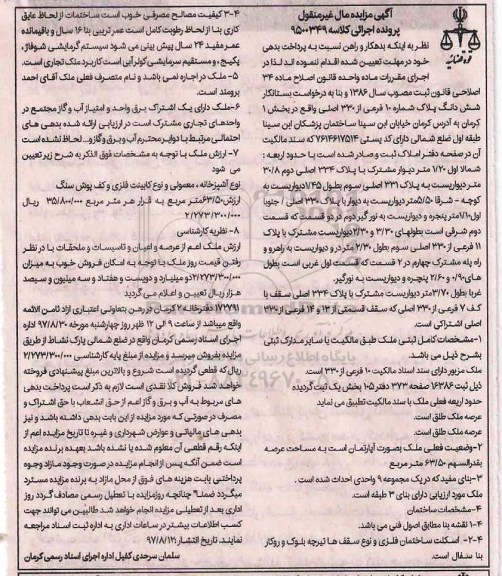 آگهی مزایده مال غیرمنقول
پرونده اجرائی کلاسه ۹۵۰۰۳۴۹
نظر به اینکه بدهکار و راهن نسبت به پرداخت بدهی
خود در مهلت تعیین شده اقدام ننموده اند لذا در
اجرای مقررات ماده واحده قانون اصلاح ماده ۳۴
اصلاحی قانون ثبت مصوب سال ۱۳۸۶ و بنا به درخواست بستانکار
شش دانگ پلاک شماره ۱۰ فرعی از ۳۳۰ اصلی واقع در بخش ۱
کرمان به آدرس کرمان خیابان ابن سینا ساختمان پزشکان ابن سینا
طبقه اول ضلع شمالی دارای کد پستی ۷۶۱۴۶۱۷۵۱۴ که سند مالکیت
آن در صفحه دفتر املاک ثبت و صادر شده است با حدود اربعه :
شمالا اول ۱/۲۰ متر دیوار مشترک با پلاک ۳۳۴ اصلی دوم ۳۰/۸
متر دیواریست به پلاک ۳۳۱ اصلی سوم بطول ۱/۴۵ دیواریست به
کوچه - شرقا ۵/۵۰ متر دیواریست به دیوار با پلاک ۳۳۰ اصلی / جنوبا
اول ۱/۱۰ متر پنجره و دیواریست به نورگیر دوم در دو قسمت که قسمت
دوم شرقی است بطولهای ۳/۳۰ و ۲/۳۰ دیواریست مشترک با پلاک
۱۱ فرعی از ۳۳۰ اصلی سوم بطول ۲/۳۰ متر در و دیواریست به راهرو و
راه پله مشترک چهارم در ۲ قسمت که قسمت اول غربی است بطول
های ۰/۹۰ و ۲/۶۰ پنجره و دیواریست به نورگیر.
غربا بطول ۳/۷۰ متر دیواریست مشترک با پلاک ۳۳۴ اصلی سقف با
کف ۷ فرعی از ۳۳۰ اصلی که سقف قسمتی از ۱۳ و ۱۴ فرعی از ۳۳۰
اصلی اشتراکی است.
۱-مشخصات کامل ثبتی ملک طبق مالکیت یا سایر مدارک ثبتی
بشرح ذیل می باشد.
ملک مزبور دارای سند اسناد مالکیت ۱۰ فرعی از ۳۳۰ است
ذیل ثبت ۱۶۳۸۶ صفحه ۳۷۳ دفتر ۱۰۵ بخش یک ثبت گردیده
حدود اربعه فعلی ملک با سند مالکیت تطبیق می نماید
عرصه ملک طلق است.
عرصه ملک طلق است.
۲-وضعیت فعلی ملک بصورت آپارتمان است به مساحت عرصه
بقدرالسهم ۶۳/۵۰ متر مربع
۳-بنای مفید که در یک مجموعه ۹ واحدی احداث شده است .
ملک مورد ارزیابی دارای بنای ۳ طبقه است.
۴-مشخصات ساختمان
۱-۴ نقشه بنا مطابق اصول فنی می باشد.
۲-۴- اسکلت ساختمان فلزی و نوع سقف ها تیرچه بلوک و روکار
بنا سفال است.
۳-۴ کیفیت مصالح مصرفی خوب است ساختمان از لحاظ عایق
کاری بنا از لحاظ رطوبت کامل است عمر تریبی بنا ۱۶ سال و باقیمانده
عمر مفید ۲۴ سال پیش بینی می شود سیستم گرمایشی شوفاژ ،
پکیج ، و مستقیم سرمایشی کولر آبی است کاربرد ملک تجاری است.
۵- ملک در اجاره نمی باشد و نام متصرف فعلی ملک آقای احمد
برومند است.
۶-ملک دارای یک اشتراک برق واحد و امتیاز آب و گاز مجتمع در
واحدهای تجاری مشترک است در ارزیابی ارائه شده بدهی های
احتمالی مرتبط با دوایر محترم آب و برق و گاز و... لحاظ نشده است
۷- ارزش ملک با توجه به مشخصات فوق الذکر به شرح زیر تعیین
می شود
نوع آشپزخانه ، معمولی و نوع کابینت فلزی و کف پوش سنگ
ارزش ۶۳/۵۰ متر مربع به قرار هر متر مربع ۳۵/۸۰۰/۰۰۰ ریال
۲/۲۷۳/۳۰۰/۰۰۰
۸- نظریه کارشناسی
ارزش ملک اعم از عرصه و اعیان و تاسیسات و ملحقات با در نظر
رفتن قیمت روز ملک با توجه به امکان فروش خوب به میزان
۲/۲۷۳/۳۰۰/۰۰۰ دو میلیارد و دویست و هفتاد و سه میلیون و سیصد
هزار ریال تعیین و اعلام می گردید
۱۷۲۷۹۱ دفترخانه ۲ کرمان در رهن بتعاونی اعتباری آزاد ثامن الائمه
واقع میباشد از ساعت ۹ الی ۱۲ ظهر روز چهارشنبه مورخه ۹۷/۸/۳۰ اداره
اجرای اسناد رسمی کرمان واقع در ضلع شمالی پارک نشاط از طریق
مزایده بفروش میرسد و مزایده از مبلغ پایه کارشناسی ۲/۲۷۳/۳۰۰/۰۰۰
ریال که قطعی گردیده است شروع و بالاترین مبلغ پیشنهادی فروخته
خواهد شد فروش کلا نقدی است لازم به ذکر است پرداخت بدهی
های مربوط به آب و برق و گاز اعم از حق انشعاب یا حق اشتراک و
مصرف در صورتی که مورد مزایده از این بابت بدهی داشته باشد و نیز
بدهی های مالیاتی و عوارض شهرداری و غیره تا تاریخ مزایده اعم از
اینکه رقم قطعی آن معلوم شده یا نشده باشد بعهده برنده مزایده
است ضمن آنکه پس از انجام مزایده در صورت وجود مازاد وجوه
پرداختی بابت هزینه های فوق از محل مازاد به برنده مزایده مسترد
میگردد ضمنا چنانچه روز مزایده با تعطیل رسمی مصادف گردد روز
اداری بعد از تعطیلی مزایده انجام خواهد شد طالبین می توانند جهت
کسب اطلاعات بیشتر در ساعات اداری به اداره ثبت اسناد مراجعه
نمایند. تاریخ انتشار: ۹۷/۸/۱۲
سلمان سرحدی کفیل اداره اجرای اسناد رسمی کرمان